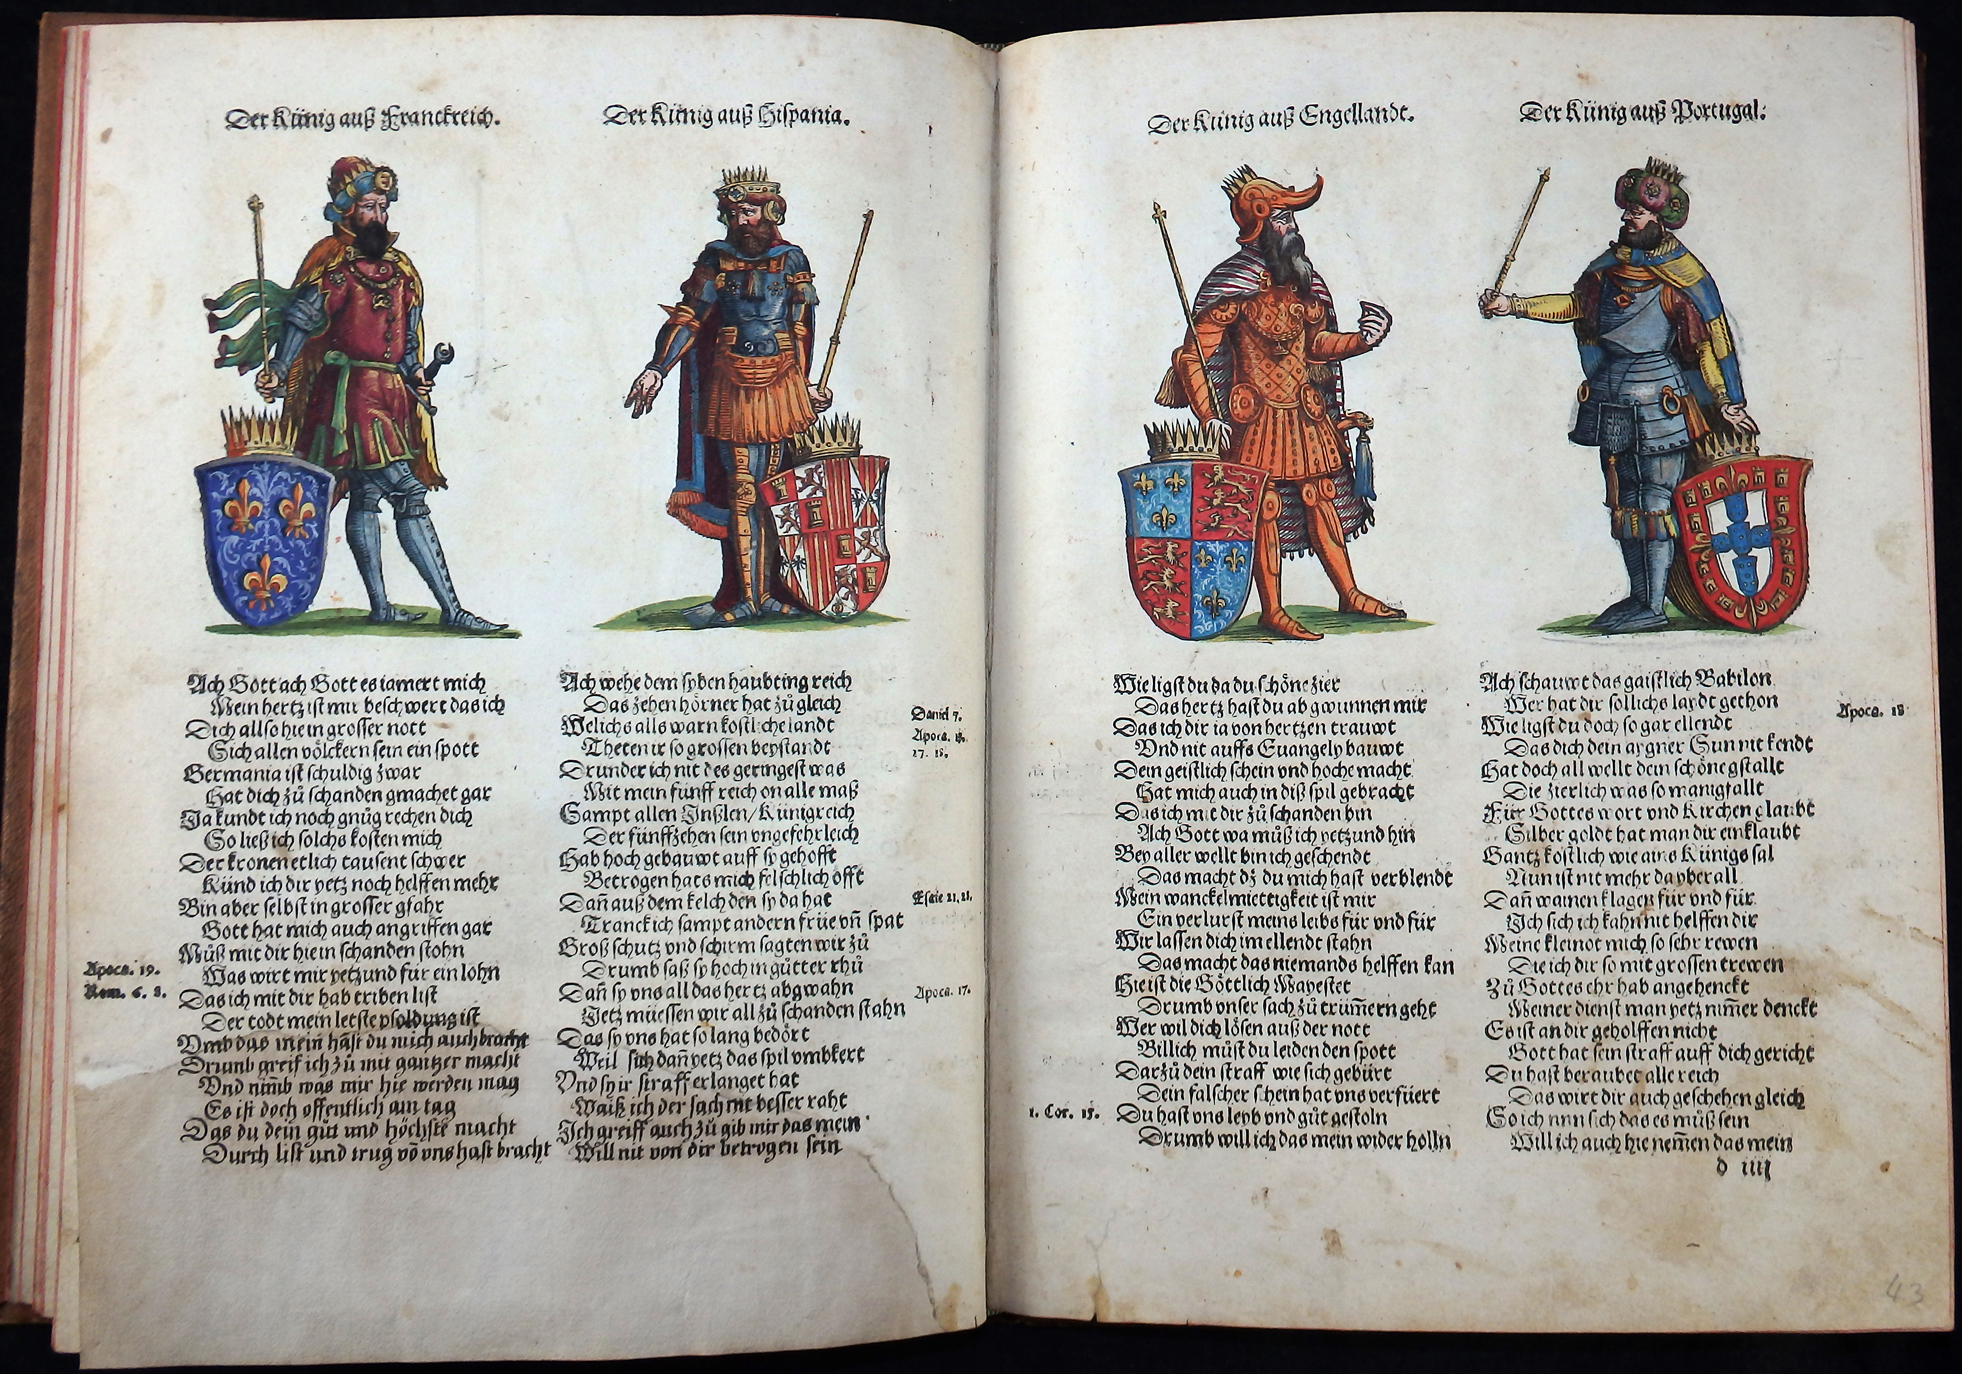 Der Künig auß Franckreich.
Ach Gott ach Gott es iamert mich
Mein hertz ist mir beschwert das ich
Dich allso hie in grosser nott
Sich allen völckern sein ein spott
Germania ist schuldig zwar
Hat dich zů schanden gmachet gar
Ja kundt ich noch gnůg rechen dich
So ließ ich solchs kosten mich
Der kronen etlich tausent schwer
Künd ich dir yetz noch helffen mehr
Bin aber selbst in grosser gfahr
Gott hat mich auch angriffen gar
Můß mit dir hie in schanden stohn
Apoca. 19.
Was wirt mir yetzund für ein lohn
Rom. 6. 8.
Das ich mit dir hab triben list
Der todt mein letste psoldung ist
Vmb das mein hast du mich auch bracht
Drumb greif ich zů mit gantzer macht
Vnd nimb was mir hie werden mag
Es ist doch offentlich am tag
Das du dein gůt und höchste macht
Durch list und trug võ vns hast bracht
Der Künig auß Hispania.
Ach wehe dem syben haubting reich
Das zehen hörner hat zů gleich
Daniel 7.
Welichs alls warn kostliche landt
Apoca. 13.
Theten ir so grossen beystandt
17. 18.
Drunder ich nit des geringest was
Mit mein fünff reich on alle maß
Sampt allen Inßlen/Künigreich
Der fünffzehen sein vngefehrleich
Hab hoch gebauwt auff sy gehofft
Betrogen hats mich felschlich offt
Dañ auß dem kelch den sy da hat
Esaie 21, 28.
Tranck ich sampt andern früe vñ spat
Groß schutz vnd schirm sagten wir zů
Drumb saß sy hoch in gůtter rhů
Dañ sy vns all das hertz abgwahn
Apoca. 17.
Jetz müessen wir all zů schanden stahn
Das sy vns hat so lang bedört
Weil sich dañ yetz das spil vmbkert
Vnd sy ir straff erlanget hat
Waiß ich der sach nit besser raht
Ich greiff auch zů gib mir das mein
Will nit von dir betrogen sein
Der Künig auß Engellandt.
Wie ligst du da du schöne zier
Das hertz hast du ab gwunnen mir
Das ich dir ia von hertzen trauwt
Vnd nit auffs Euangely bauwt
Dein geistlich schein vnd hoche macht
Hat mich auch in diß spil gebracht
Das ich mit dir zů schanden bin
Ach Gott wa můß ich yetzund hin
Bey aller wellt bin ich geschendt
Das macht dz du mich hast verblendt
Mein wanckelmiettigkeit ist mir
Ein verlurst meins leibs für vnd für
Wir lassen dich im ellendt stahn
Das macht das niemands helffen kan
Hie ist die Göttlich Mayestet
Drumb vnser sach zů trümmern geht
Wer wil dich lösen auß der nott
Billich můst du leiden den spott
Darzů dein straff wie sich gebürt
Dein falscher schein hat vns verfüert
1. Cor. 15.
Du hast vns leyb vnd gůt gestoln
Drumb will ich das mein wider holln
Der Künig auß Portugal:
Ach schauwt das gaistlich Babilon
Wer hat dir sollichs laydt gethon
Apoca. 18
Wie ligst du doch so gar ellendt
Das dich dein aygner Sun nit kendt
Hat doch all wellt dein schöne gstallt
Die zierlich was so manigfallt
Für Gottes wort vnd Kirchen glaubt
Silber goldt hat man dir einklaubt
Gantz köstlich wie ains Künigs sal
Nun ist nit mehr da yberall
Dañ wainen klagen für vnd für
Ich sich ich kahn nit helffen dir
Meine kleinot mich so sehr rewen
Die ich dir so mit grossen trewen
Zů Gottes ehr hab angehenckt
Meiner dienst man yetz nim̃er denckt
Es ist an dir geholffen nicht
Gott hat sein straff auff dich gericht
Du hast beraubet alle reich
Das wirt dir auch geschehen gleich
So ich nun sich das es můß sein
Will ich auch hie nem̃en das mein
d iiij
43